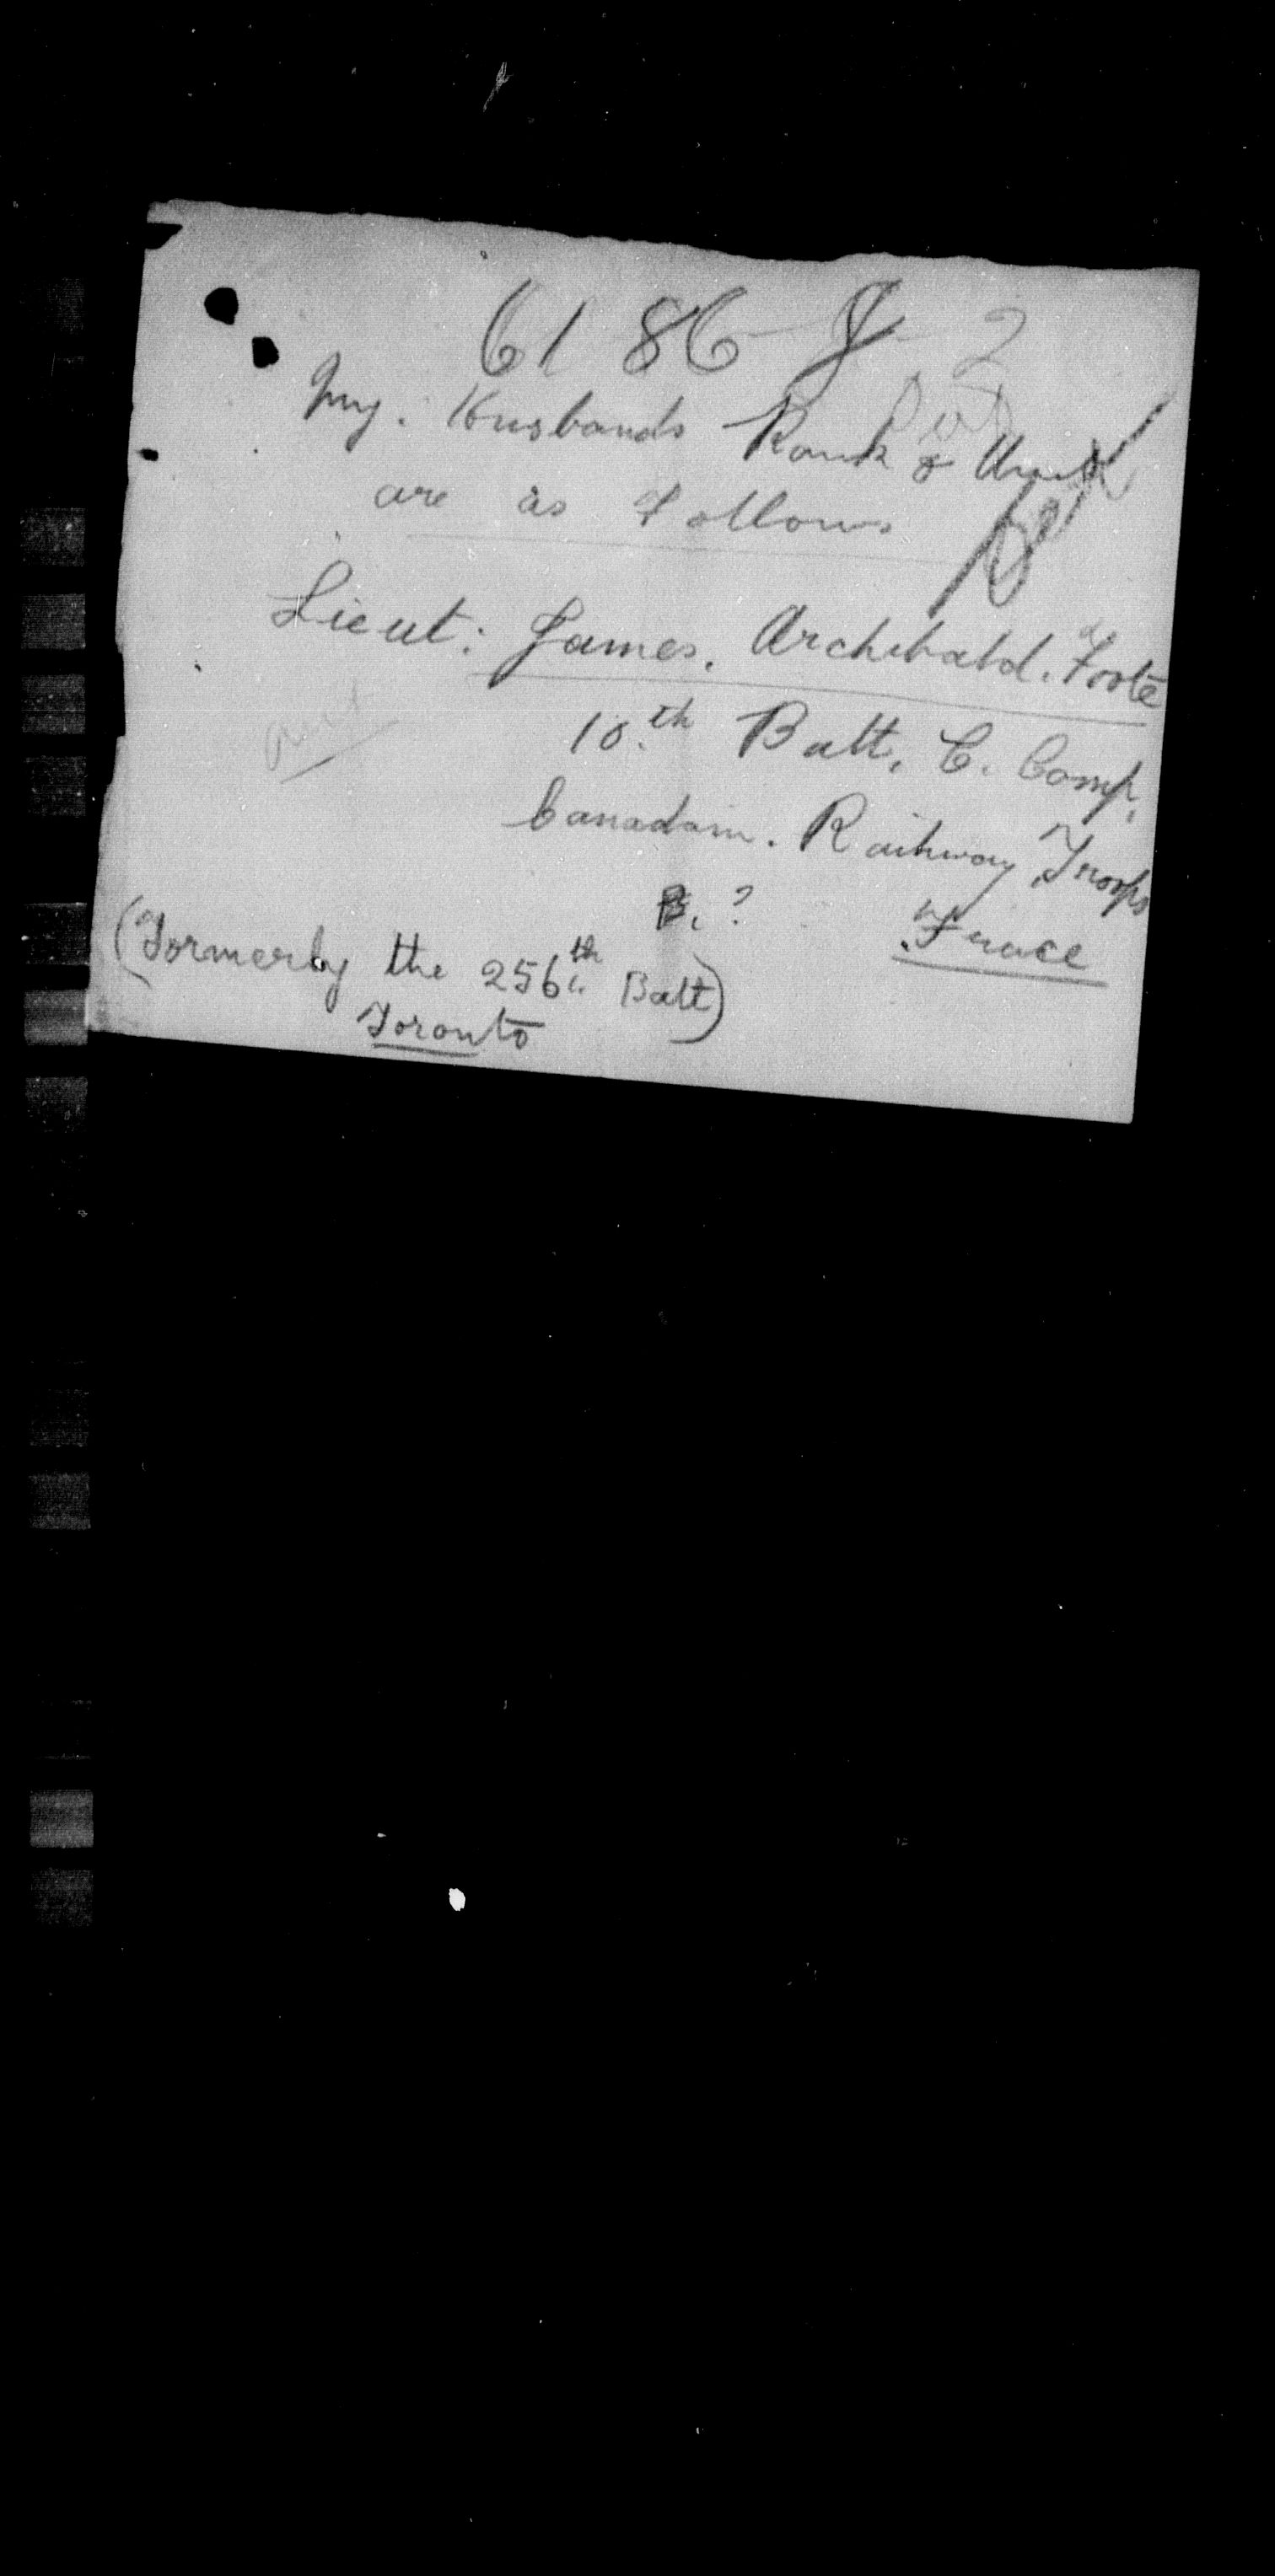 61 86 J 2
My. Husbands Rank & Unit
are as follows
Lieut: James. Archibald. Foote
10.th Batt, C. Comp,
Canadain. Railway, Troops
B. ?
France
(Formerly the 256th Batt)
Toronto